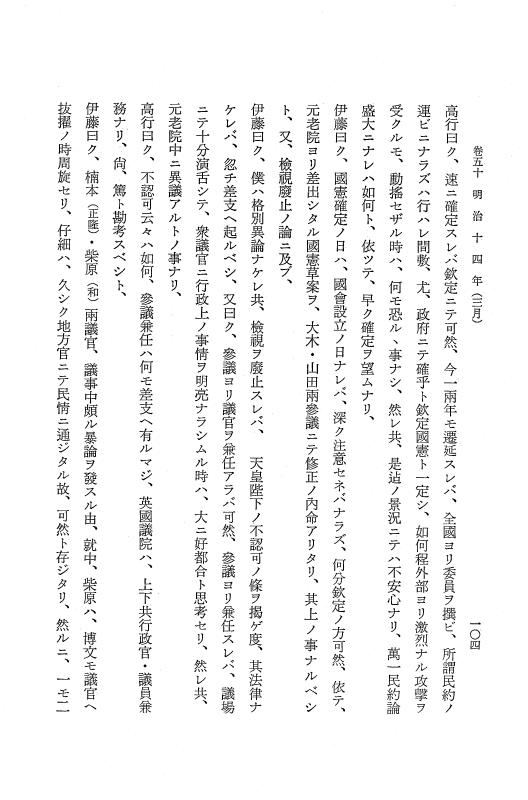 巻五十　明治十四年（三月）
一〇四
高行曰ク、速ニ確定スレバ欽定ニテ可然、今一兩年モ遷延スレバ、全國ヨリ委員ヲ撰ビ、所謂民約ノ
運ビニナラズハ行ハレ間敷、尤、政府ニテ確乎ト欽定國憲ト一定シ、如何程外部ヨリ激烈ナル攻撃ヲ
受クルモ、動搖セザル時ハ、何モ恐ルヽ事ナシ、然レ共、是迠ノ景況ニテハ不安心ナリ、萬一民約論
盛大ニナレハ如何ト、依ツテ、早ク確定ヲ望ムナリ、
伊藤曰ク、國憲確定ノ日ハ、國會設立ノ日ナレバ、深ク注意セネバナラズ、何分欽定ノ方可然、依テ、
元老院ヨリ差出シタル國憲草案ヲ、大木・山田兩參議ニテ修正ノ內命アリタリ、其上ノ事ナルベシ
ト、又、檢視廢止ノ論ニ及ブ、
伊藤曰ク、僕ハ格別異論ナケレ共、檢視ヲ廢止スレバ、　天皇陛下ノ不認可ノ條ヲ揭ゲ度、其法律ナ
ケレバ、忽チ差支ヘ起ルベシ、又曰ク、參議ヨリ議官ヲ兼任アラバ可然、參議ヨリ兼任スレバ、議場
ニテ十分演舌シテ、衆議官ニ行政上ノ事情ヲ明亮ナラシムル時ハ、大ニ好都合ト思考セリ、然レ共、
元老院中ニ異議アルトノ事ナリ、
高行曰ク、不認可云々ハ如何、參議兼任ハ何モ差支ヘ有ルマジ、英國議院ハ、上下共行政官・議員兼
務ナリ、尙、篤ト勘考スベシト、
伊藤曰ク、楠本（正隆）・柴原（和）兩議官、議事中頗ル暴論ヲ發スル由、就中、柴原ハ、博文モ議官ヘ
拔擢ノ時周旋セリ、仔細ハ、久シク地方官ニテ民情ニ通ジタル故、可然ト存ジタリ、然ルニ、一モ二